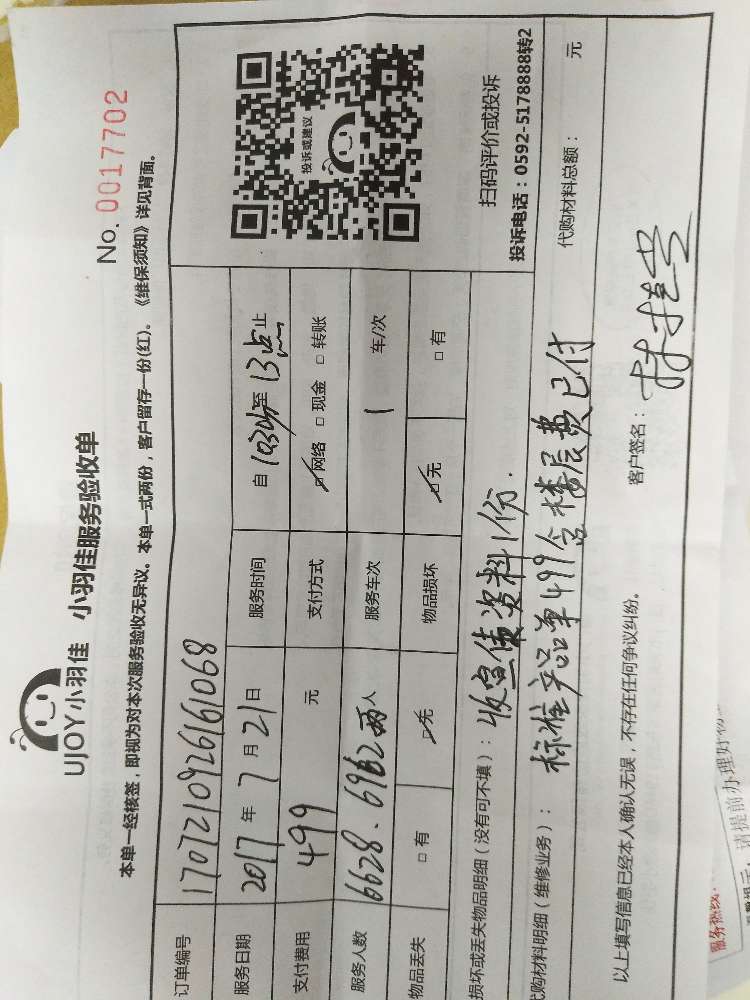 UJOY小羽佳 小羽佳服务验收单
No. 0017702
本单一经核签，即视为对本次服务验收无异议。本单一式两份，客户留存一份(红)。《维保须知》详见背面。
订单编号 170721092616 1068
服务日期 2017 年 7 月 21 日 服务时间 自 10:30分 至 13点 止
支付费用 499 元 支付方式 ☑网络 □现金 □转账
服务人数 6628.6962 两人 服务车次 1 车/次
物品丢失 □有 ☑无 物品损坏 ☑无 □有
投诉或建议
扫码评价或投诉
投诉电话：0592-5178888转2
损坏或丢失物品明细（没有可不填）：收宣传资料1份.
代购材料明细（维修业务）：标准产品单499含楼层费已付
代购材料总额： 元
以上填写信息已经本人确认无误，不存在任何争议纠纷。
客户签名：
服务热线：
请提前办理好物